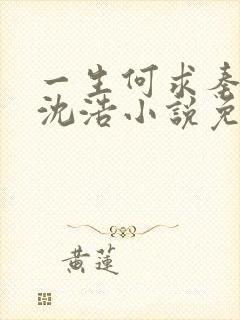 一生何求秦
沈浩小說免
黃蓮